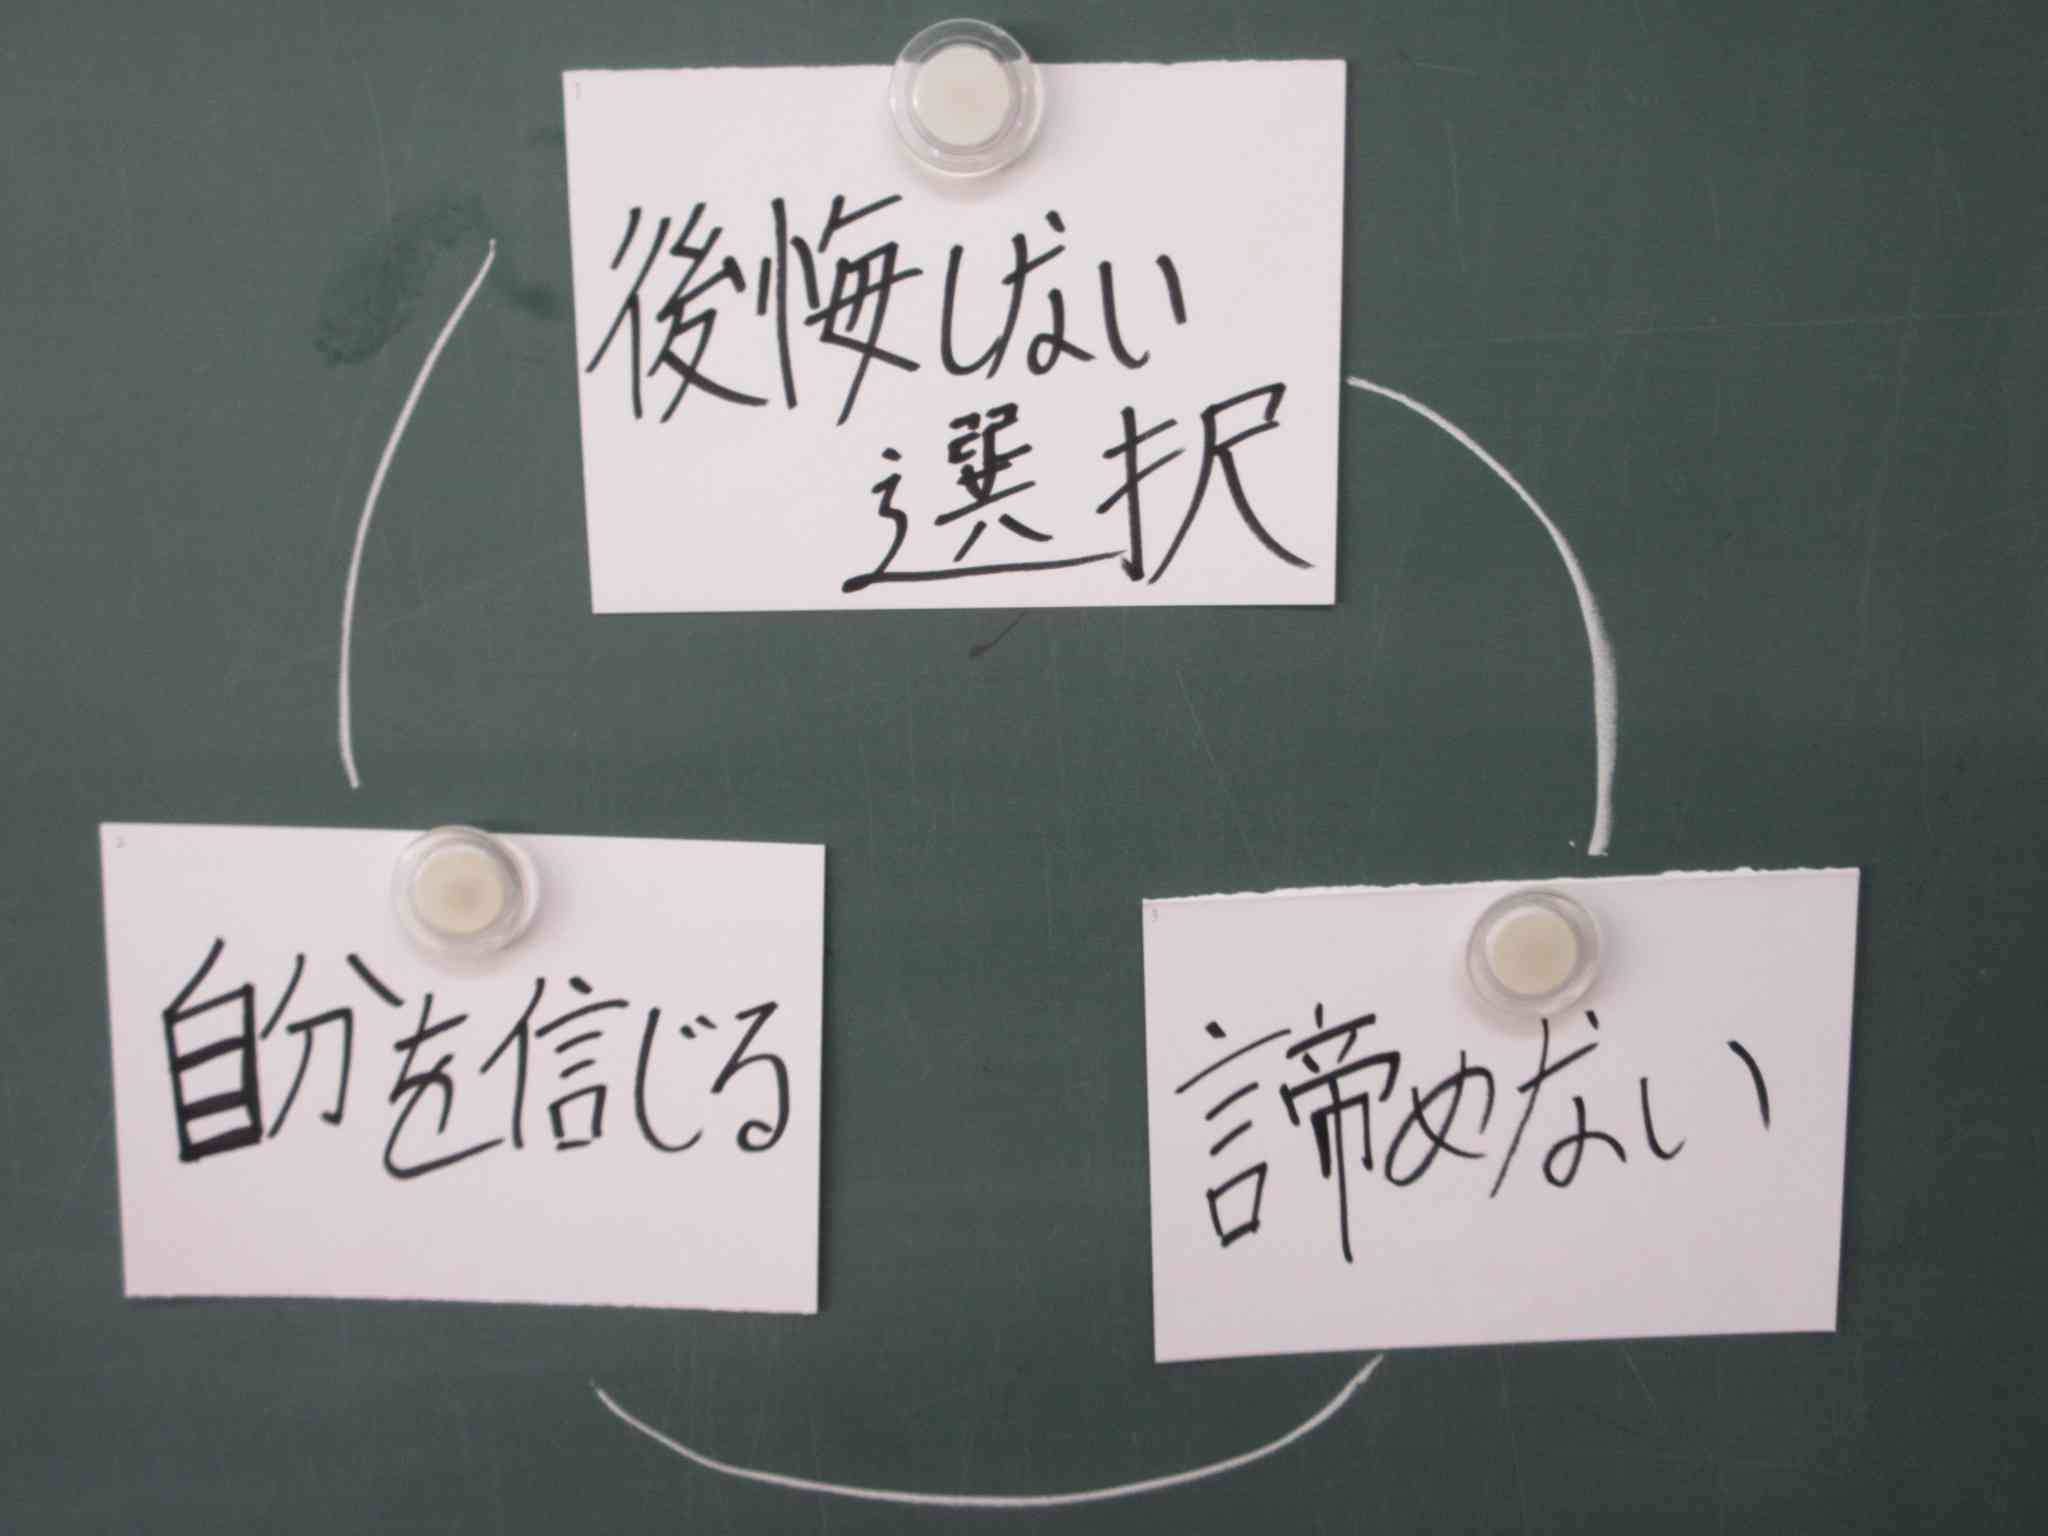 1
後悔しない
選択
2
自分を信じる
3
諦めない